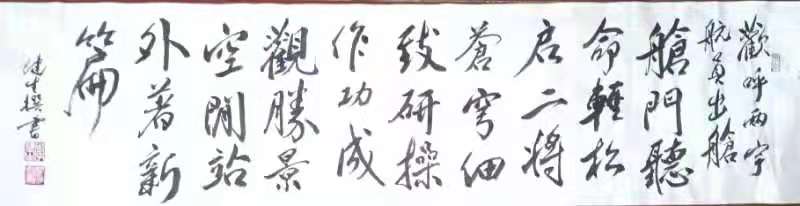 歡呼兩宇
航員出艙
艙門聽
命輕松
启二將
蒼穹細
致研操
作功成
觀勝景
空間站
外著新
篇
撰書